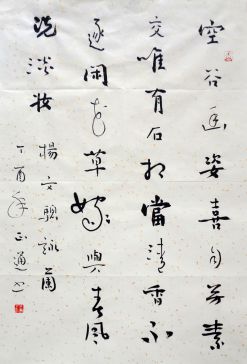 空谷幽姿喜自芳素
交唯有石相當清宵不
逐閑花草嫁與春風
洗淡妝
楊文驄詠蘭
丁酉年正通書